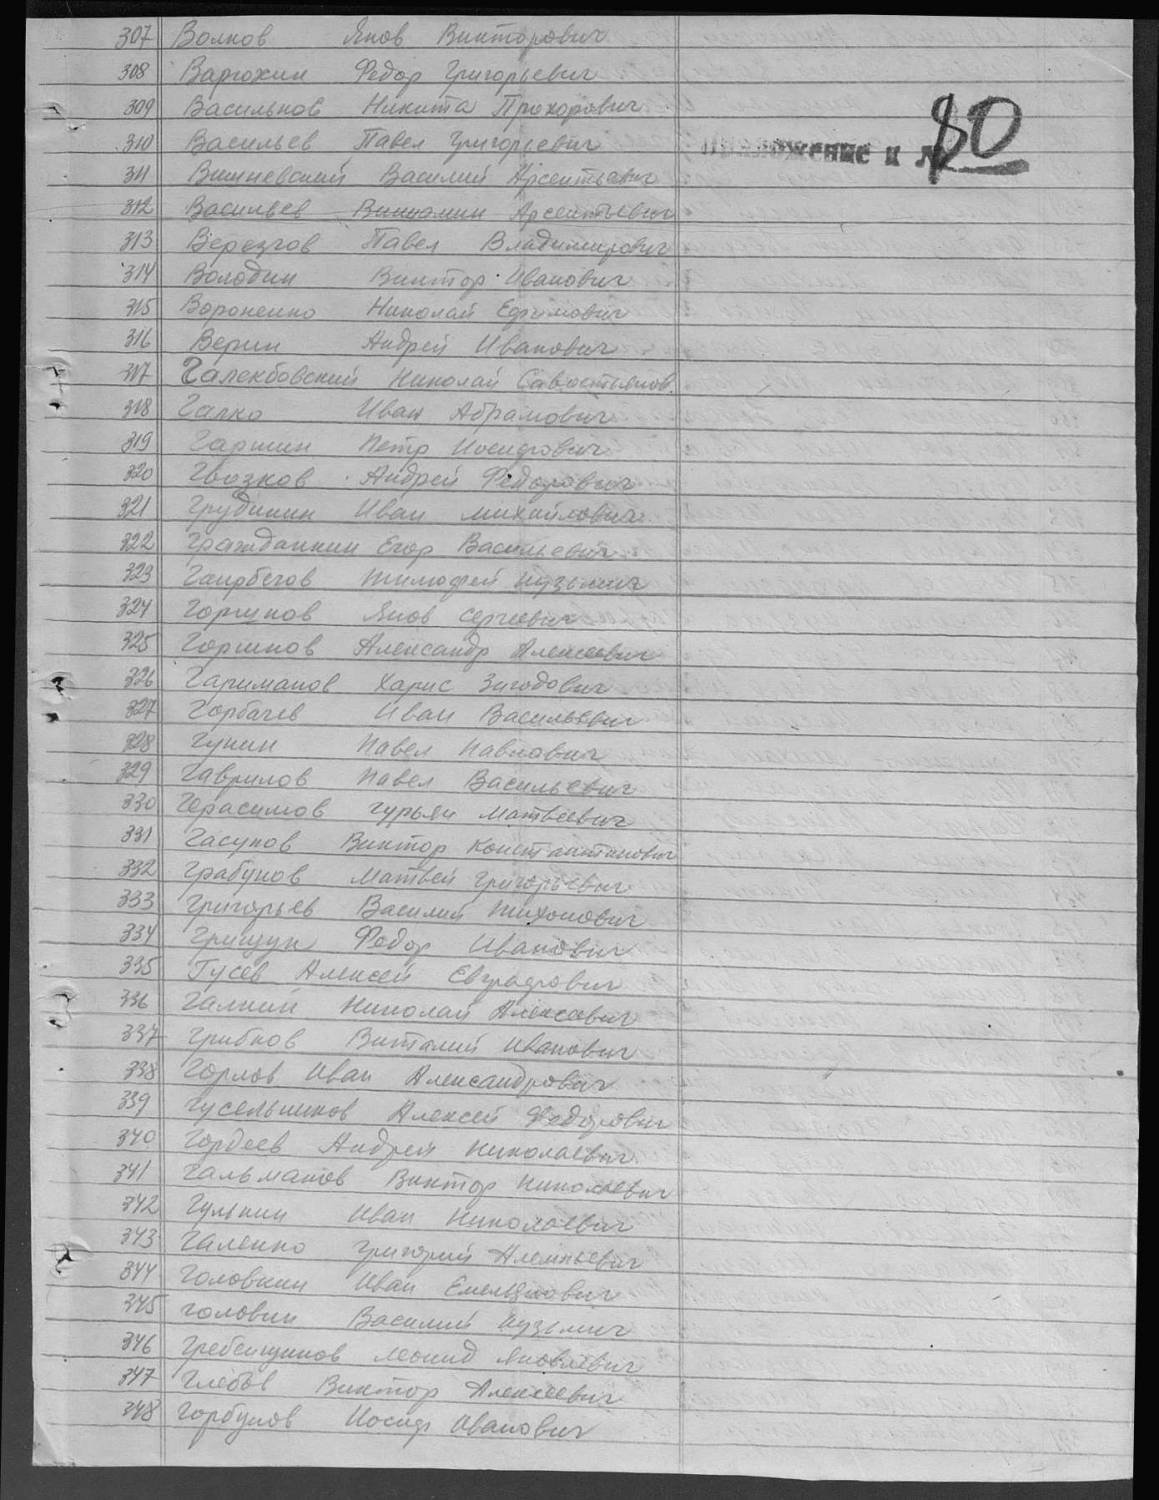 307 Волков Яков Викторович
308 Варюхин Федор Григорьевич
309 Васильков Никита Прохорович
80
310 Васильев Павел Григорьевич
Приложение к №
311 Вишневский Василий Арсентьевич
312 Васильев Вениамин Арсентьевич
313 Верезгов Павел Владимирович
314 Володин Виктор Иванович
315 Вороненко Николай Ефимович
316 Верин Андрей Иванович
317 Николай Савостьянов
318 Галко Иван Абрамович
319 Гаршин Петр Иосифович
320 Гвозков Андрей Федорович
321 Грудинин Иван Михайлович
322 Гражданкин Егор Васильевич
323 Тимофей Кузьмич
324 Горшков Яков Сергеевич
325 Горшков Александр Алексеевич
326 Гариманов Харис
327 Горбачев Иван Васильевич
328 Гунин Павел Павлович
329 Гаврилов Павел Васильевич
330 Герасимов Гурьян Матвеевич
331 Гасуков Виктор Константинович
332 Грабунов Матвей Григорьевич
333 Григорьев Василий Тихонович
334 Грищук Федор Иванович
335 Гусев Алексей Евграфович
336 Галкин Николай Алексеевич
337 Грибков Виталий Иванович
338 Горлов Иван Александрович
339 Гусельников Алексей Федорович
340 Гордеев Андрей Николаевич
341 Гальматов Виктор Николаевич
342 Гулькин Иван Николаевич
343 Галенко Григорий
344 Головкин Иван Емельянович
345 Головин Василий Кузьмич
346 Гребенщиков Леонид Яковлевич
347 Глебов Виктор Алексеевич
348 Горбунов Иосиф Иванович